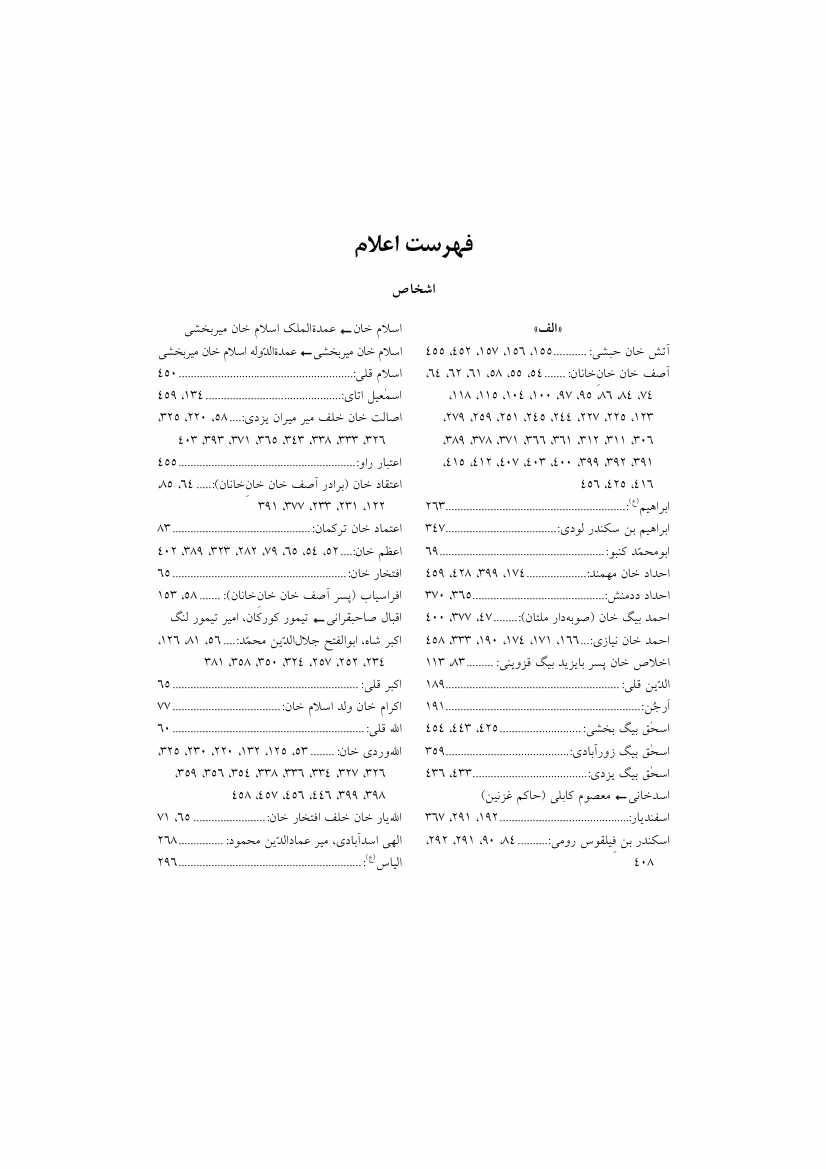 فهرست اعلام
اشخاص
«الف»
آتش خان حبشی: ........... ١٥٥، ١٥٦، ١٥٧، ٤٥٢، ٤٥٥
آصف خان خانِ‌خانان: ....... ٥٤، ٥٥، ٥٨، ٦١، ٦٢، ٦٤،
٧٤، ٨٤، ٨٦، ٩٥، ٩٧، ١٠٠، ١٠٤، ١١٥، ١١٨،
١٢٣، ٢٢٥، ٢٢٧، ٢٤٤، ٢٤٥، ٢٥١، ٢٥٩، ٢٧٩،
٣٠٦، ٣١١، ٣١٢، ٣٦١، ٣٦٦، ٣٧١، ٣٧٨، ٣٨٩،
٣٩١، ٣٩٢، ٣٩٩، ٤٠٠، ٤٠٣، ٤٠٧، ٤١٢، ٤١٥،
٤١٦، ٤٢٥، ٤٥٦
ابراهیم(ع): ............................................................ ٢٦٣
ابراهیم بن سکندر لودی: ..................................... ٣٤٧
ابومحمّد کنبو: ....................................................... ٦٩
احداد خان مهمند: .................... ١٧٤، ٣٩٩، ٤٢٨، ٤٥٩
احداد ددمنش: ............................................ ٣٦٥، ٣٧٠
احمد بیگ خان (صوبه‌دار ملتان): ........ ٤٧، ٣٧٧، ٤٠٠
احمد خان نیازی: ... ١٦٦، ١٧١، ١٧٤، ١٩٠، ٣٣٣، ٤٥٨
اخلاص خان پسر بایزید بیگ قزوینی: ......... ٨٣، ١١٣
الدّین قلی: .......................................................... ١٨٩
اَرجُن: ................................................................. ١٩١
اسحٰق بیگ بخشی: ........................... ٤٢٥، ٤٤٣، ٤٥٤
اسحٰق بیگ زورآبادی: ......................................... ٣٥٩
اسحٰق بیگ یزدی: ...................................... ٤٣٣، ٤٣٦
اسدخانی ← معصوم کابلی (حاکم غزنین)
اسفندیار: .......................................... ١٩٢، ٢٩١، ٣٦٧
اسکندر بن فِیلقوس رومی: .......... ٨٤، ٩٠، ٢٩١، ٢٩٢،
٤٠٨
اسلام خان ← عمدةالملک اسلام خان میربخشی
اسلام خان میربخشی ← عمدةالدّوله اسلام خان میربخشی
اسلام قلی: .......................................................... ٤٥٠
اسمٰعیل اتای: ............................................. ١٣٤، ٤٥٩
اصالت خان خلف میر میران یزدی: .... ٥٨، ٢٢٠، ٣٢٥،
٣٢٦، ٣٣٣، ٣٣٨، ٣٤٣، ٣٦٥، ٣٧١، ٣٩٣، ٤٠٣
اعتبار راو: ........................................................... ٤٥٥
اعتقاد خان (برادر آصف خان خانِ‌خانان): ..... ٦٤، ٨٥،
١٢٢، ٢٣١، ٢٣٣، ٣٧٧، ٣٩١
اعتماد خان ترکمان: .............................................. ٨٣
اعظم خان: .... ٥٢، ٥٤، ٦٥، ٧٩، ٢٨٢، ٣٢٣، ٣٨٩، ٤٠٢
افتخار خان: .......................................................... ٦٥
افراسیاب (پسر آصف خان خانِ‌خانان): ....... ٥٨، ١٥٣
اقبال صاحبقرانی ← تیمور کورکان، امیر تیمور لنگ
اکبر شاه، ابوالفتح جلال‌الدّین محمّد: .... ٥٦، ٨١، ١٢٦،
٢٣٤، ٢٥٢، ٢٥٧، ٣٢٤، ٣٥٠، ٣٥٨، ٣٨١
اکبر قلی: .............................................................. ٦٥
اکرام خان ولد اسلام خان: .................................... ٧٧
الله قلی: ................................................................ ٦٠
الله‌وردی خان: ........ ٥٣، ١٢٥، ١٣٢، ٢٢٠، ٢٣٠، ٣٢٥،
٣٢٦، ٣٢٧، ٣٣٤، ٣٣٦، ٣٣٨، ٣٥٤، ٣٥٦، ٣٥٩،
٣٩٨، ٣٩٩، ٤٤٦، ٤٥٦، ٤٥٧، ٤٥٨
الله‌یار خان خلف افتخار خان: ........................ ٦٥، ٧١
الهی اسدآبادی، میر عمادالدّین محمود: ............... ٢٦٨
الیاس(ع): ............................................................. ٢٩٦